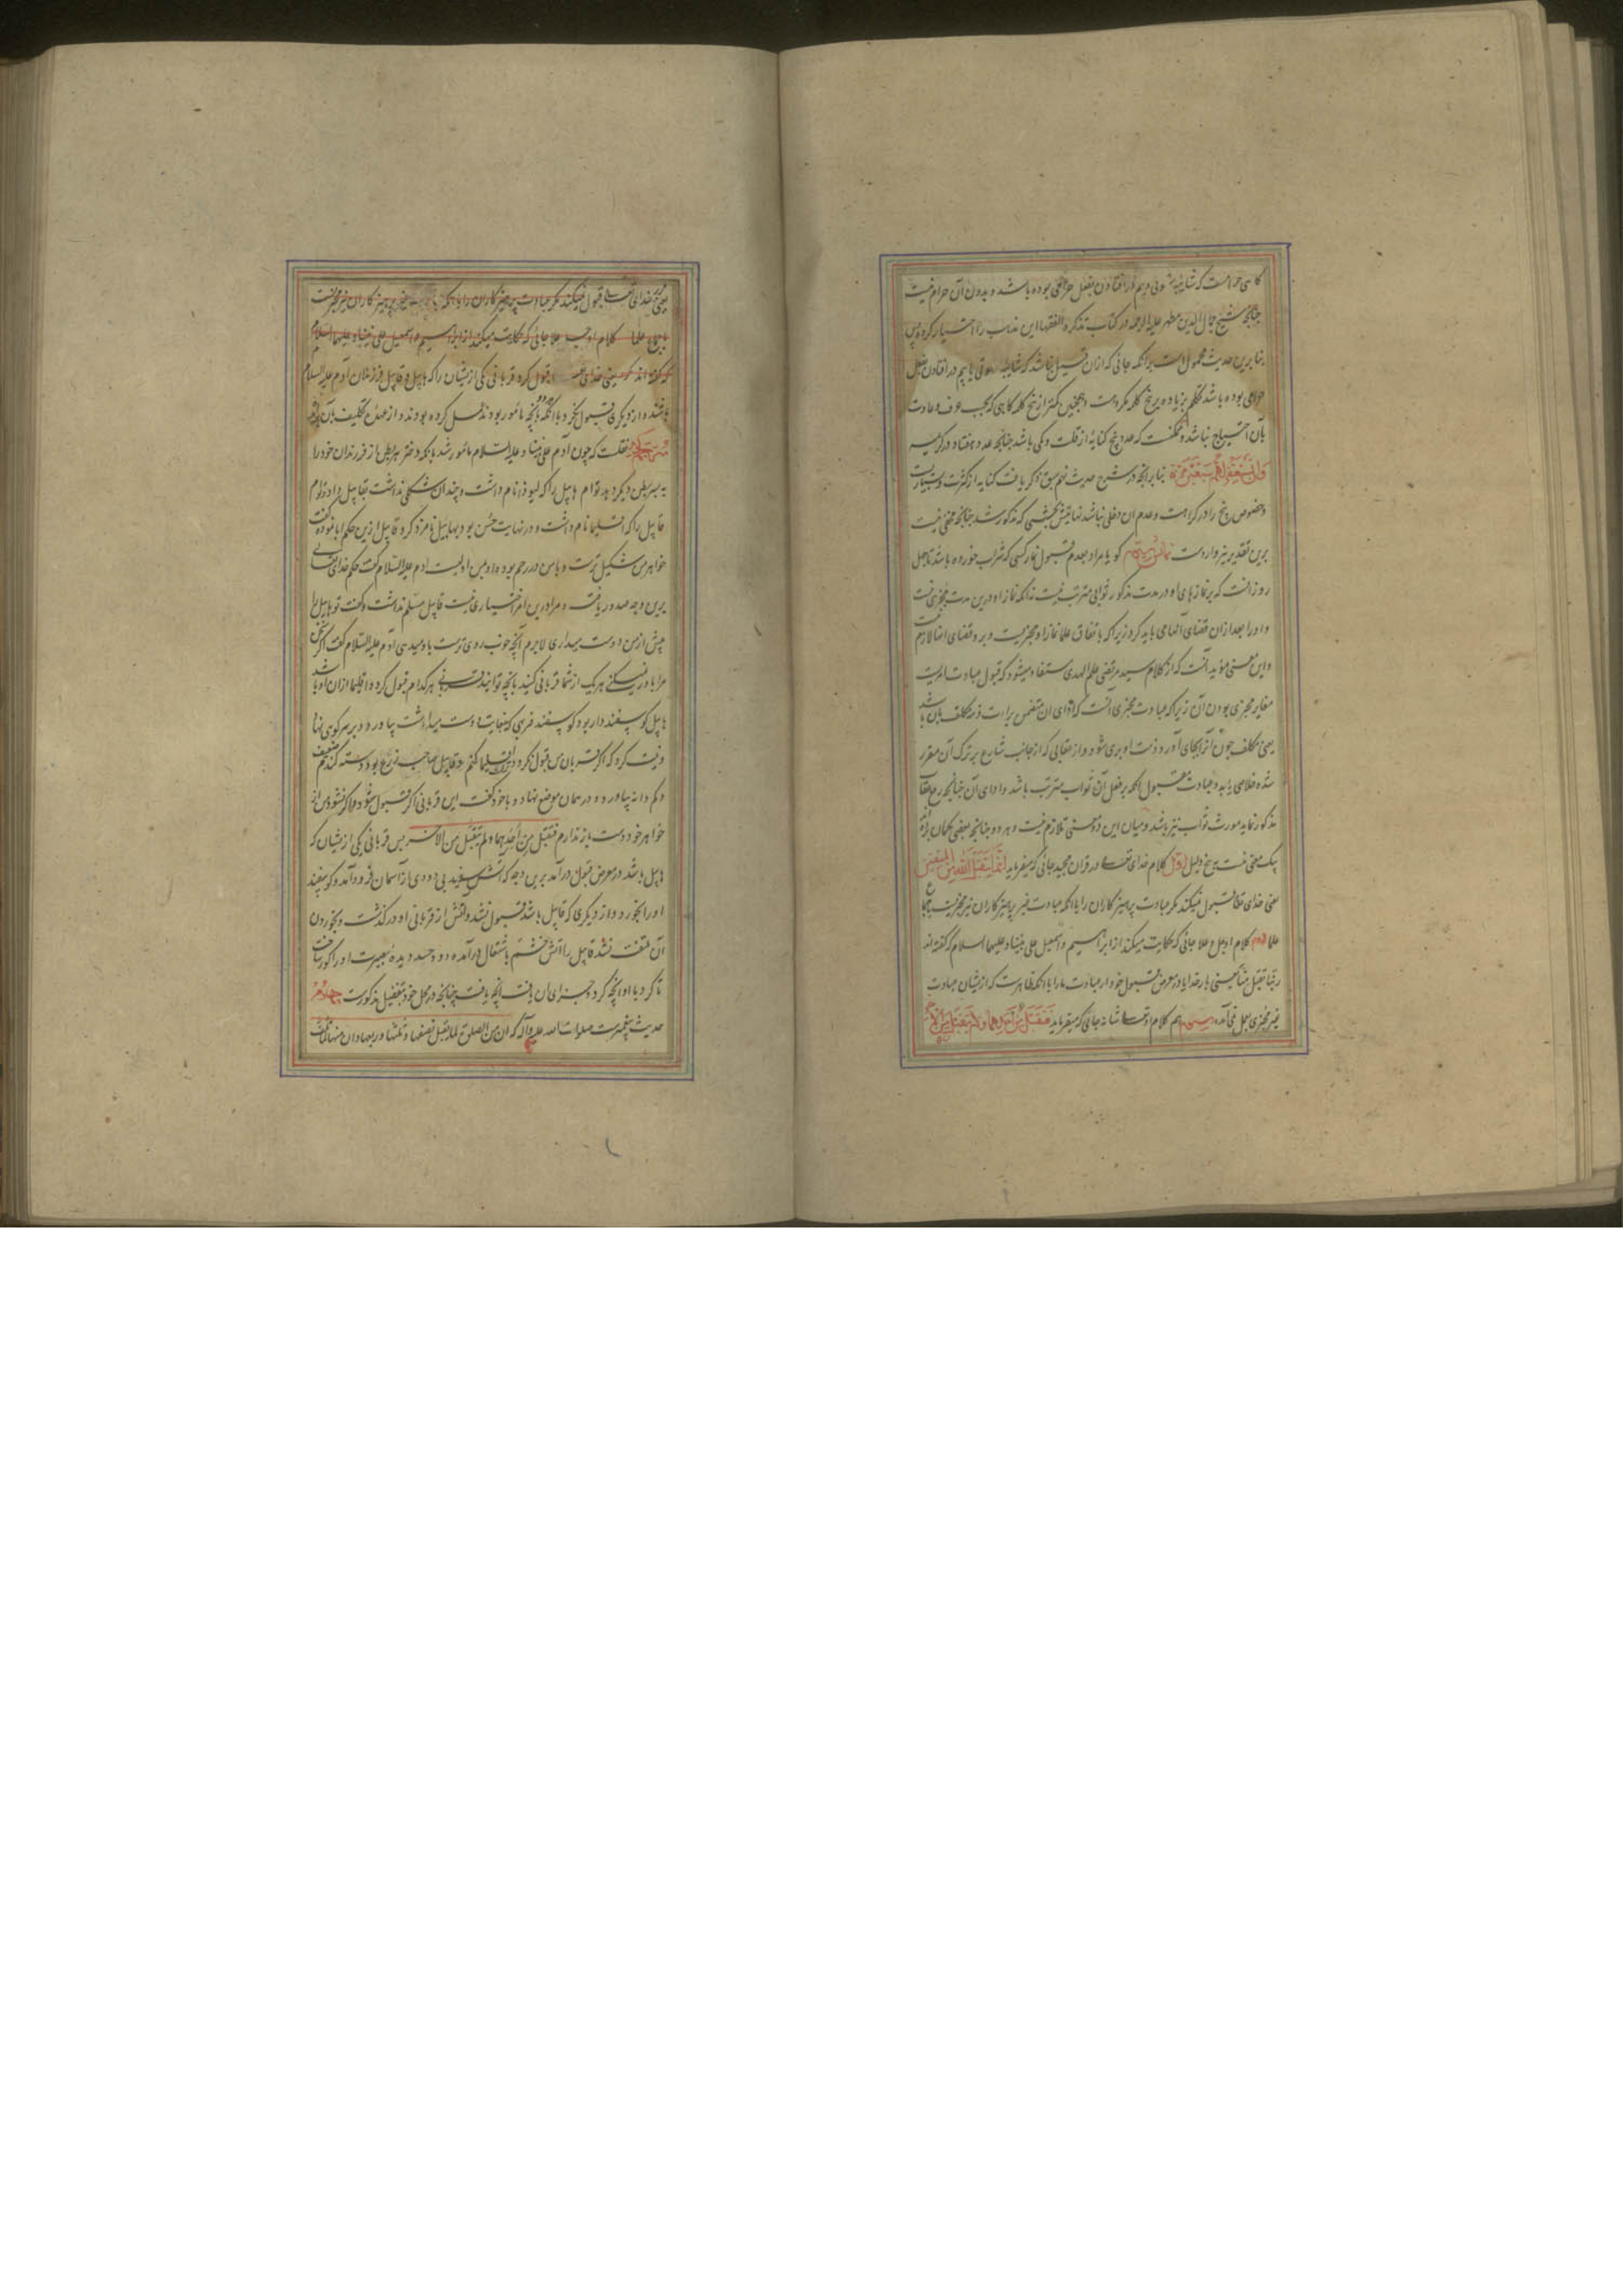 کاهی حرامست که شایبهٔ شهوتی و بیم در افتادن بفعل حرامی بوده باشد و بدون آن حرام نیست
چنانچه شیخ جمال الدین مطهر علیه الرحمه در کتاب تذکرة الفقها این مذهب را اختیار کرده پس
بنا برین حدیث محمول است بر آنکه جائی که از ان قبیل نباشد که شایبهٔ شهوتی یا بیم در افتادن بفعل
حرامی بوده باشد تکلم بزیاده بر پنج کلمه مکروهست و همچنین کمتر از پنج کلمه کاهی که بحسب عرف و عادت
بآن احتیاج نباشد و ممکنست که عدد پنج کنایهٔ از قلت و کمی باشد چنانچه عدد هفتاد در کریمهٔ
وان تستغفر لهم سبعین مرة بنا بر آنچه در شرح حدیث پنجم سبق ذکر یافت کنایه از کثرت و بسیاریست
و خصوص پنج را در کراهت و عدم آن دخلی نباشد نهایتش بحثی که مذکور شد چنانچه مخفی نیست
برین تقدیر نیز واردست گویا مراد بعدم قبول نماز کسی که شراب خورده باشد تا چهل
روز آنست که بر نمازهای او در مدت مذکور ثوابی مترتب نیست نه آنکه نماز او درین مدت مجزی نیست
و او را بعد از ان قضای آنها می باید کرد زیرا که باتفاق علما نماز او مجزیست و برو قضای آنها لازم نیست
و این معنی مؤید آنست که از کلام سید مرتضی علم الهدی مستفاد میشود که قبول عبادت امریست
مغایر مجزی بودن آن زیرا که عبادت مجزی آنست که ادای آن متضمن براءت ذمه مکلف بآن باشد
یعنی مکلف چون آنرا بجای آورد ذمت او بری شود و از عقابی که از جانب شارع بر ترک آن مقرر
شده خلاصی یابد و عبادت مقبول آنکه بر فعل آن ثواب مترتب باشد و ادای آن چنانچه رفع عقاب
مذکور نماید مورث ثواب نیز باشد و میان این دو معنی تلازم نیست و هر دو چنانچه بعضی کمان برده اند
بیک معنی نیست به پنج دلیل اول کلام خدای تعالی در قران مجید جائی که میفرماید انما یتقبل الله من المتقین
یعنی خدای تعالی قبول نمیکند مکر عبادت پرهیزکاران را با آنکه عبادت غیر پرهیزکاران نیز مجزیست باجماع
علما دوم کلام او جل و علا جائی که حکایت میکند از ابراهیم و اسمعیل علی نبینا و علیهما السلام که گفته اند
ربنا تقبل منا یعنی بار خدایا در معرض قبول خود آر عبادت ما را با آنکه ظاهرست که از ایشان عبادت
غیر مجزی بعمل نمی آمده سیوم هم کلام او تعالی شانه جائی که میفرماید فتقبل من احدهما ولم یتقبل من الآخر
یعنی خدای تعالی قبول نمیکند مکر عبادت پرهیزکاران را با آنکه عبادت غیر پرهیزکاران نیز مجزیست
باجماع علما کلام او جل و علا جائی که حکایت میکند از ابراهیم و اسمعیل علی نبینا و علیهما السلام
که گفته اند که یعنی خدای تعالی قبول کرد قربانی یکی از ایشان را که هابیل و قابیل فرزندان آدم علیه السلام
باشند و از دیکری قبول نکرد با آنکه بآنچه مأمور بودند عمل کرده بودند و از عهدهٔ تکلیف بآن
نقلست که چون آدم علی نبینا و علیه السلام مأمور شد بانکه دختر هر بطن از فرزندان خود را
به پسر بطن دیکر دهد توام هابیل را که لیوذا نام داشت و چندان شکلی نداشت بقابیل داد و توام
قابیل را که اقلیما نام داشت و در نهایت حسن بود بهابیل نامزد کرد قابیل ازین حکم ابا نموده گفت
خواهر من شکیل ترست و با من در رحم بوده او بمن اولیست آدم علیه السلام گفت حکم خدای تعالی
برین وجه صدور یافته و مرا درین امر اختیاری نیست قابیل مسلم نداشت و گفت تو هابیل را
بیش از من دوست میداری لاجرم آنچه خوب روی ترست باو میدهی آدم علیه السلام گفت اگر سخن
مرا باور نمیکنی هر یک از شما قربانی کنید بآنچه توانید قربانی هر کدام قبول کردد اقلیما از ان او باشد
هابیل کوسفنددار بود کوسفند فربهی که بغایت دوست میداشت بیاورد و بر سر کوهی نهاد
و نیت کرد که اگر قربان من قبول نکردد ترک اقلیما کنم و قابیل صاحب زرع بود دستهٔ کندم ضعیف
و کم دانه بیاورد و در همان موضع نهاد و با خود گفت این قربانی اگر قبول شود و اگر نشود من از
خواهر خود دست باز ندارم فتقبل من احدهما ولم یتقبل من الآخر پس قربانی یکی از ایشان که
هابیل باشد در معرض قبول در آمد برین وجه که آتش سفید بی دودی از آسمان فرود آمد و کوسفند
او را بخورد و از دیکری که قابیل باشد قبول نشد و آتش از قربانی او در گذشت و بخوردن
آن ملتفت نشد قابیل را آتش خشم باشتعال در آمده دود حسد دیدهٔ بصیرت او را کور ساخت
تا کرد با او آنچه کرد و جزای آن یافت آنچه یافت چنانچه در محل خود بتفصیل مذکورست چهارم
حدیث پیغمبرست صلوات الله علیه و آله که ان من الصلوة لما یقبل نصفها و ثلثها و ربعها و ان منها لما تلف